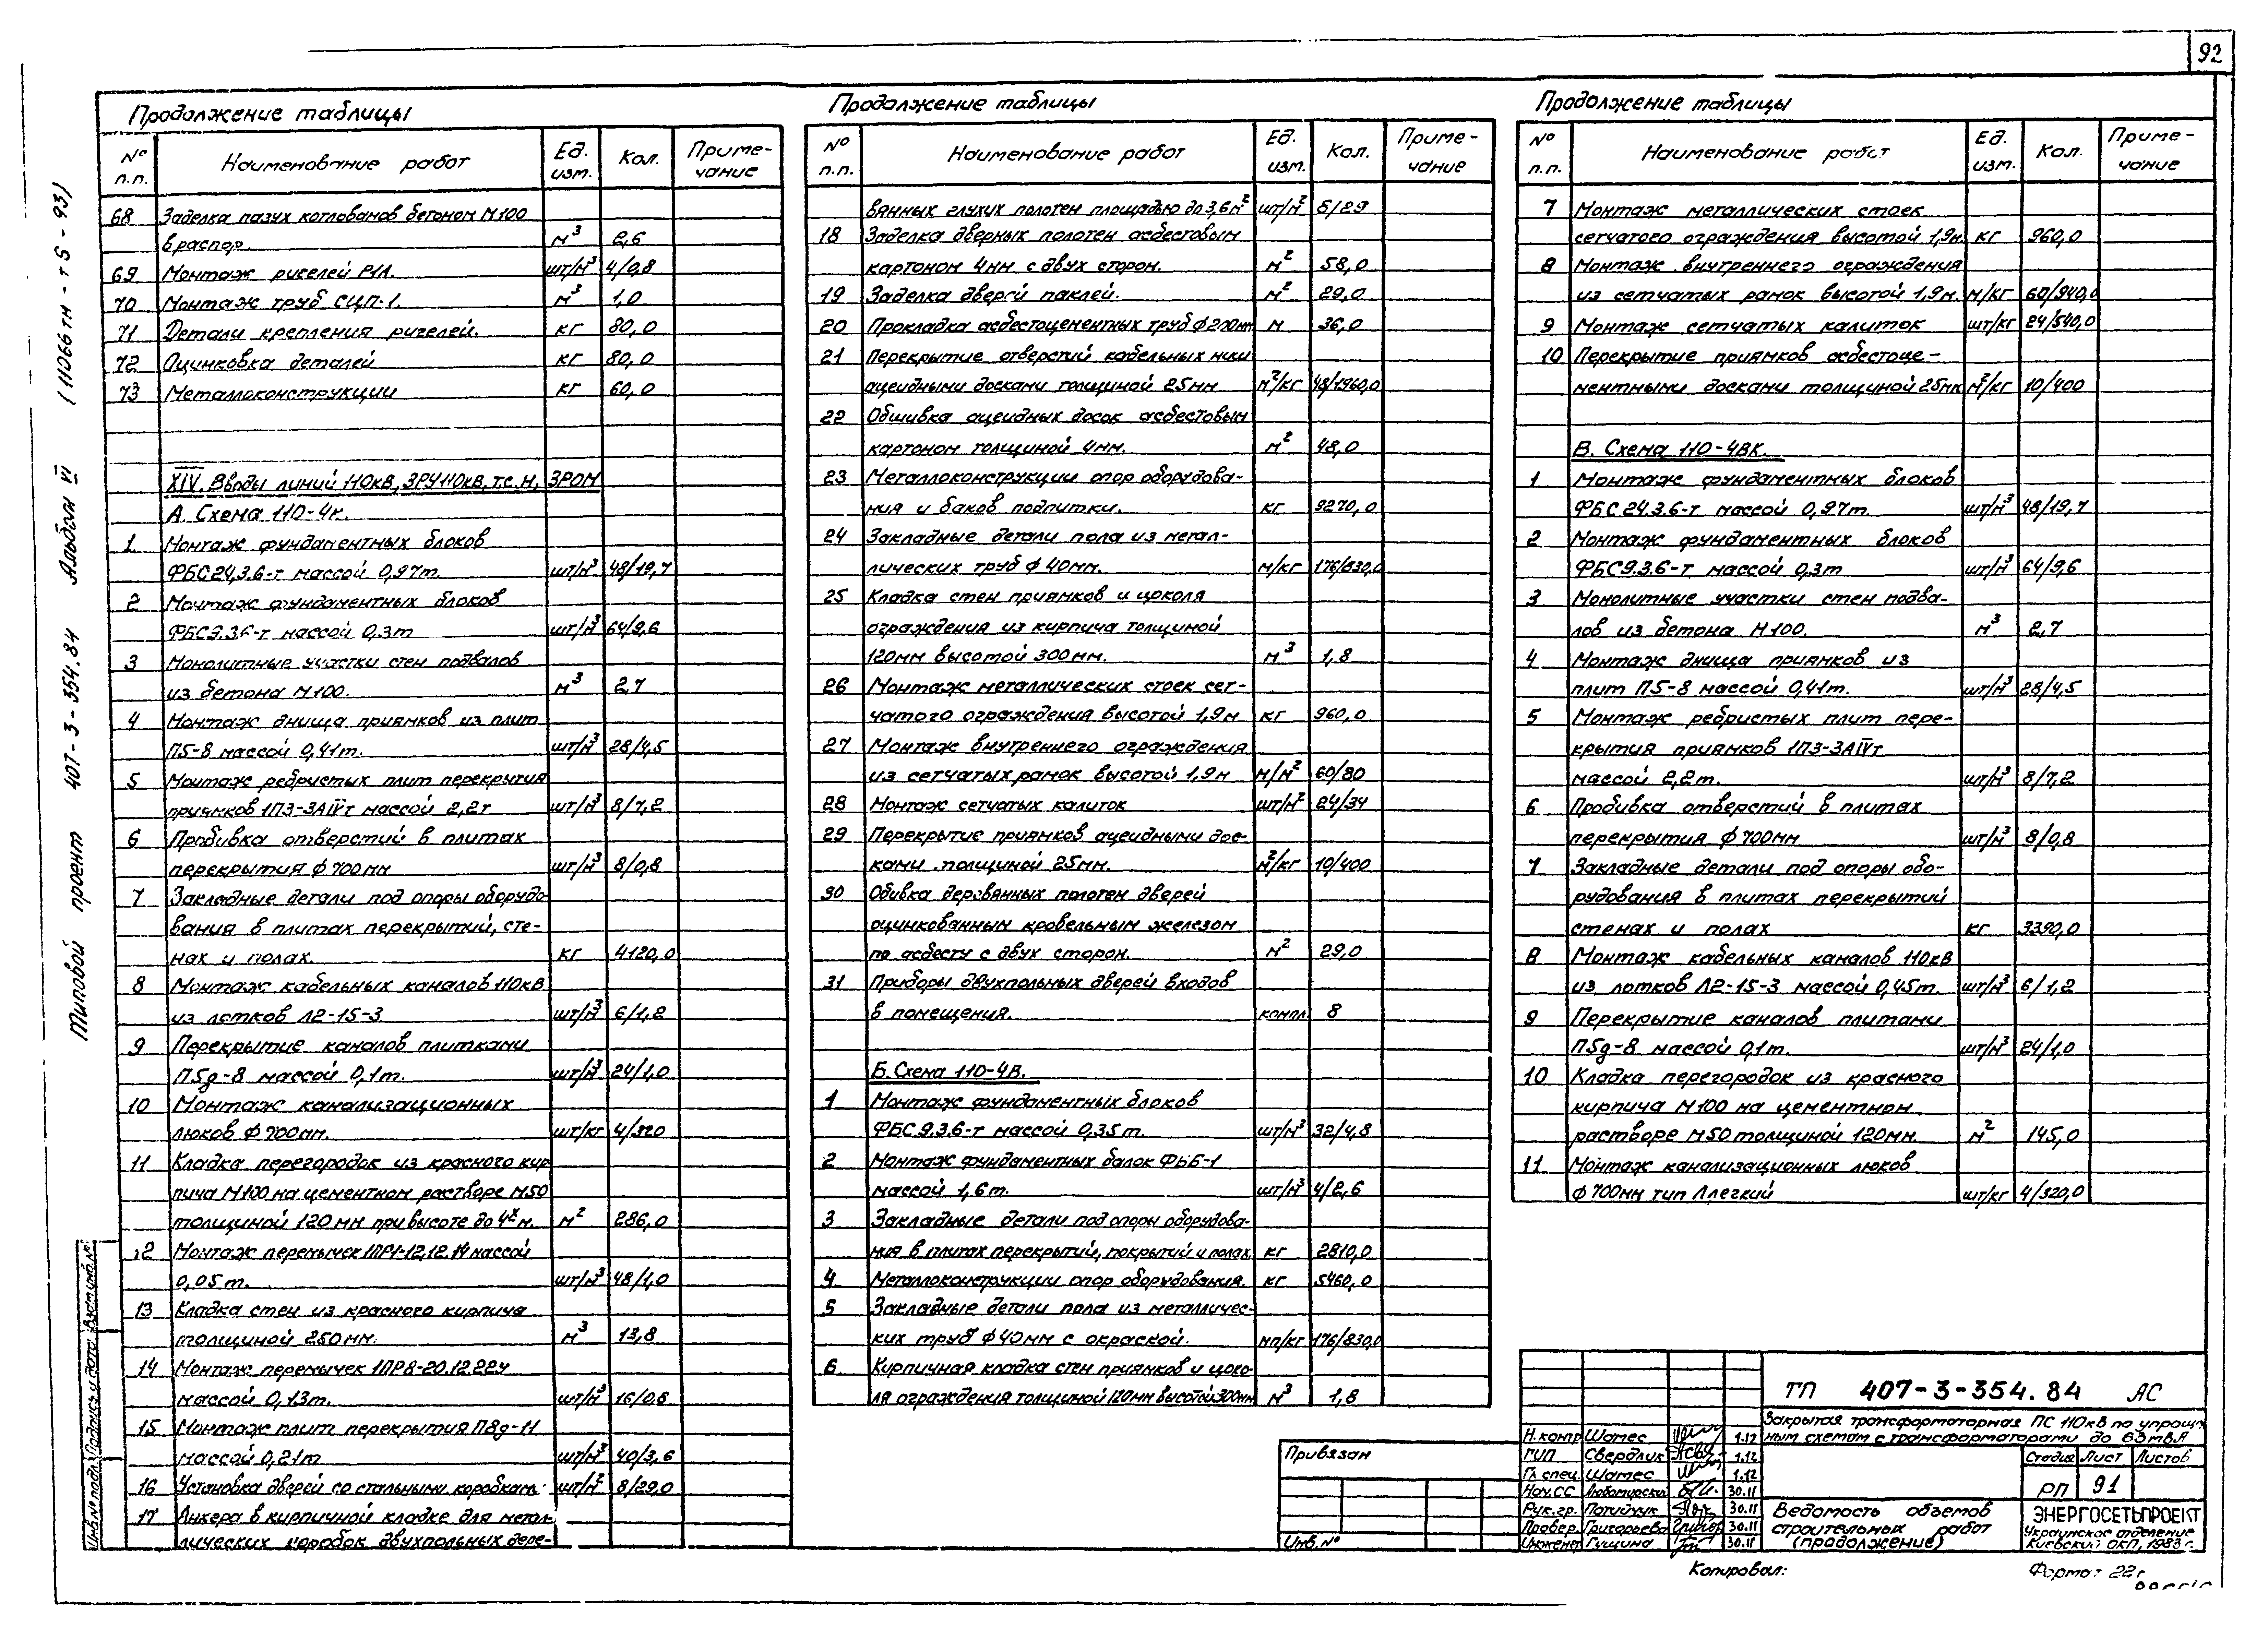 92
Продолжение таблицы
№ п.п. Наименование работ Ед. изм. Кол. Приме-чание
68 Заделка пазух котлованов бетоном М100
враспор. м³ 2,6
69 Монтаж ригелей Р1Л. шт/м³ 4/0,8
70 Монтаж труб СЦП-1. м³ 1,0
71 Детали крепления ригелей. кг 80,0
72 Оцинковка деталей кг 80,0
73 Металлоконструкции кг 60,0
XIV. Вводы линий 110кВ, ЗРУ110кВ, т.с.н, ЗРОМ
А. Схема 110-4к.
1 Монтаж фундаментных блоков
ФБС24,3.6-т массой 0,97т. шт/м³ 48/19,7
2 Монтаж фундаментных блоков
ФБС9.3.6-т массой 0,3т шт/м³ 64/9,6
3 Монолитные участки стен подвалов
из бетона М100. м³ 2,7
4 Монтаж днища приямков из плит
П5-8 массой 0,41т. шт/м³ 28/4,5
5 Монтаж ребристых плит перекрытия
приямков 1П3-3АIVт массой 2,2т шт/м³ 8/7,2
6 Пробивка отверстий в плитах
перекрытия ф700мм шт/м³ 8/0,8
7 Закладные детали под опоры оборудо-
вания в плитах перекрытий, сте-
нах и полах. кг 4120,0
8 Монтаж кабельных каналов 110кВ
из лотков Л2-15-3 шт/м³ 6/1,2
9 Перекрытие каналов плитками
П5д-8 массой 0,1т. шт/м³ 24/1,0
10 Монтаж канализационных
люков ф700мм. шт/кг 4/320
11 Кладка перегородок из красного кир
пича М100 на цементном растворе М50
толщиной 120мм при высоте до 4х м. м² 286,0
12 Монтаж перемычек 1ПР1-12.12.14 массой
0,05т. шт/м³ 48/1,0
13 Кладка стен из красного кирпича
толщиной 250мм. м³ 13,8
14 Монтаж перемычек 1ПР8-20.12.22у
массой 0,13т. шт/м³ 16/0,8
15 Монтаж плит перекрытия П8д-11
массой 0,21т шт/м³ 40/3,6
16 Установка дверей со стальными коробкам. шт/м² 8/29,0
17 Анкера в кирпичной кладке для метал-
лических коробок двухпольных дере-
Продолжение таблицы
№ п.п. Наименование работ Ед. изм. Кол. Приме-чание
вянных глухих полотен площадью до 3,6м² шт/м² 8/29
18 Заделка дверных полотен асбестовым
картоном 4мм с двух сторон. м² 58,0
19 Заделка дверей паклей. м² 29,0
20 Прокладка асбестоцементных труб ф200мм м 36,0
21 Перекрытие отверстий кабельных ниш
ацеидными досками толщиной 25мм м²/кг 48/1960,0
22 Обшивка ацеидных досок асбестовым
картоном толщиной 4мм. м² 48,0
23 Металлоконструкции опор оборудова-
ния и баков подпитки. кг 9270,0
24 Закладные детали пола из метал-
лических труб ф40мм. м/кг 176/830,0
25 Кладка стен приямков и цоколя
ограждения из кирпича толщиной
120мм высотой 300мм. м³ 1,8
26 Монтаж металлических стоек сет-
чатого ограждения высотой 1,9м кг 960,0
27 Монтаж внутреннего ограждения
из сетчатых рамок высотой 1,9м м/м² 60/80
28 Монтаж сетчатых калиток шт/м² 24/34
29 Перекрытие приямков ацеидными дос-
ками толщиной 25мм. м²/кг 10/400
30 Обивка деревянных полотен дверей
оцинкованным кровельным железом
по асбесту с двух сторон. м² 29,0
31 Приборы двухпольных дверей входов
в помещения. компл 8
Б. Схема 110-4В.
1 Монтаж фундаментных блоков
ФБС.9.3.6-т массой 0,35т. шт/м³ 32/4,8
2 Монтаж фундаментных балок ФББ-1
массой 1,6т. шт/м³ 4/2,6
3 Закладные детали под опоры оборудова-
ния в плитах перекрытий, покрытий и полах. кг 2810,0
4 Металлоконструкции опор оборудования. кг 5460,0
5 Закладные детали пола из металличес-
ких труб ф40мм с окраской. мп/кг 176/830,0
6 Кирпичная кладка стен приямков и цоко-
ля ограждения толщиной 120мм высотой 300мм м³ 1,8
Продолжение таблицы
№ п.п. Наименование работ Ед. изм. Кол. Приме-чание
7 Монтаж металлических стоек
сетчатого ограждения высотой 1,9м. кг 960,0
8 Монтаж внутреннего ограждения
из сетчатых рамок высотой 1,9м. м/кг 60/940,0
9 Монтаж сетчатых калиток шт/кг 24/540,0
10 Перекрытие приямков асбестоце-
ментными досками толщиной 25мм м²/кг 10/400
В. Схема 110-4ВК.
1 Монтаж фундаментных блоков
ФБС 24.3.6-т массой 0,97т. шт/м³ 48/19,7
2 Монтаж фундаментных блоков
ФБС9.3.6-т массой 0,3т шт/м³ 64/9,6
3 Монолитные участки стен подва-
лов из бетона М100. м³ 2,7
4 Монтаж днища приямков из
плит П5-8 массой 0,41т. шт/м³ 28/4,5
5 Монтаж ребристых плит пере-
крытия приямков 1П3-3АIVт
массой 2,2т. шт/м³ 8/7,2
6 Пробивка отверстий в плитах
перекрытия ф700мм шт/м³ 8/0,8
7 Закладные детали под опоры обо-
рудования в плитах перекрытий
стенах и полах кг 3390,0
8 Монтаж кабельных каналов 110кВ
из лотков Л2-15-3 массой 0,45т. шт/м³ 6/1,2
9 Перекрытие каналов плитами
П5д-8 массой 0,1т. шт/м³ 24/1,0
10 Кладка перегородок из красного
кирпича М100 на цементном
растворе М50 толщиной 120мм. м² 145,0
11 Монтаж канализационных люков
ф700мм тип Ллегкий шт/кг 4/320,0
Типовой проект 407-3-354.84 Альбом VI (11066тм-т5-93)
Инв.№ подл. Подпись и дата Взам.инв.№
Привязан
Инв.№
ТП 407-3-354.84 АС
Закрытая трансформаторная ПС 110кВ по упрощн
ным схемам с трансформаторами до 63мвА
Н.контр Шамес 1.12
ГИП Свердлик 1.12
Гл.спец. Шамес 1.12
Нач.СС Любомирский 30.11
Рук.гр. Потийчук 30.11
Провер. Григорьева 30.11
Инженер Гущина 30.11
Стадия Лист Листов
РП 91
Ведомость объемов
строительных работ
(продолжение)
ЭНЕРГОСЕТЬПРОЕКТ
Украинское отделение
Киевский ОКП, 1983г.
Копировал:
Формат 22г